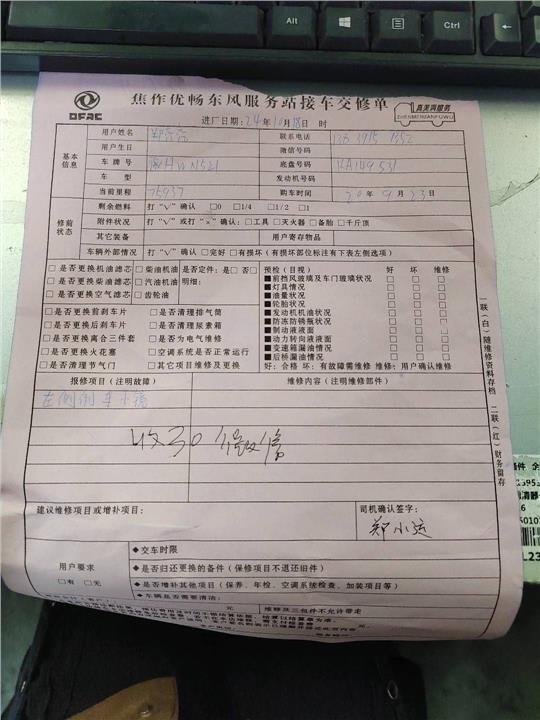 Alt
Ctrl
DFAC
焦作优畅东风服务站接车交修单
真美腾服务
ZHENMEIRANFUWU
进厂日期：24年10月18日 时
基本信息
用户姓名
联系电话
用户生日
微信号码
车牌号
底盘号码
车型
发动机号码
当前里程 75937
购车时间 20年9月23日
修前状态
剩余燃料 打“√”确认 □0 □1/4 □1/2 □1
附件状况 打“√”或打“×”确认：□工具 □灭火器 □备胎 □千斤顶
其它装备
用户寄存物品
车辆外部情况 打“√”确认 □完好 □有损坏（有损坏部位标注有下表左侧选项）
□是否更换机油滤芯 □柴油机油 是否定件：是□ 否□
□是否更换柴油滤芯 □汽油机油 明细：
□是否更换空气滤芯 □齿轮油
□是否更换前刹车片 □是否清理排气筒
□是否更换后刹车片 □是否清理尿素箱
□是否更换离合三件套 □是否为电气维修
□是否更换火花塞 □空调系统是否正常运行
□是否清理节气门 □其它项目维修及更换
预检（目视） 好 坏 维修
■前挡风玻璃及车门玻璃状况 □ □ □
■灯具情况 □ □ □
■油量状况 □ □ □
■轮胎状况 □ □ □
■发动机机油状况 □ □ □
■防冻防锈瓶状况 □ □ □
■制动液液面 □ □ □
■动力转向液液面 □ □ □
■变速箱漏油情况 □ □ □
■后桥漏油情况 □ □ □
好：合格 坏：有故障需维修 维修：用户确认维修
报修项目（注明故障）
维修内容（注明维修部件）
收30 微信
建议维修项目或增补项目：
司机确认签字：
郑小运
用户要求
□有 □无
◆交车时限
◆是否归还更换的备件（保修项目不退还旧件）
◆是否增补其他项目（保养、年检、空调系统检查、加装项目等）
◆车辆是否需要清洁：
元
维修及三包件不允许带走
一联（白）随维修资料存档 二联（红）财务留存